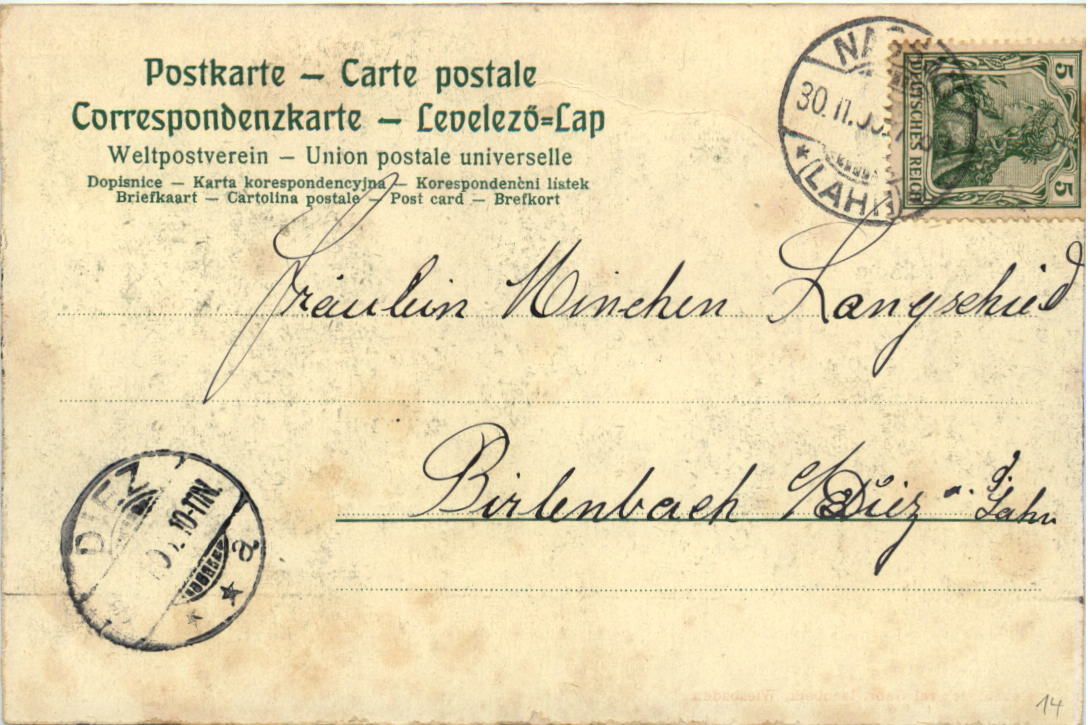 Postkarte – Carte postale
Correspondenzkarte – Levelező=Lap
Weltpostverein – Union postale universelle
Dopisnice – Karta korespondencyjna – Korespondenční lístek
Briefkaart – Cartolina postale – Post card – Brefkort
30.11.
* (LAHN)
DEUTSCHES REICH
5 5
Fräulein Minchen Langschied
Birlenbach b/Diez a. d. Lahn
DIEZ
10-11N.
* * a
14